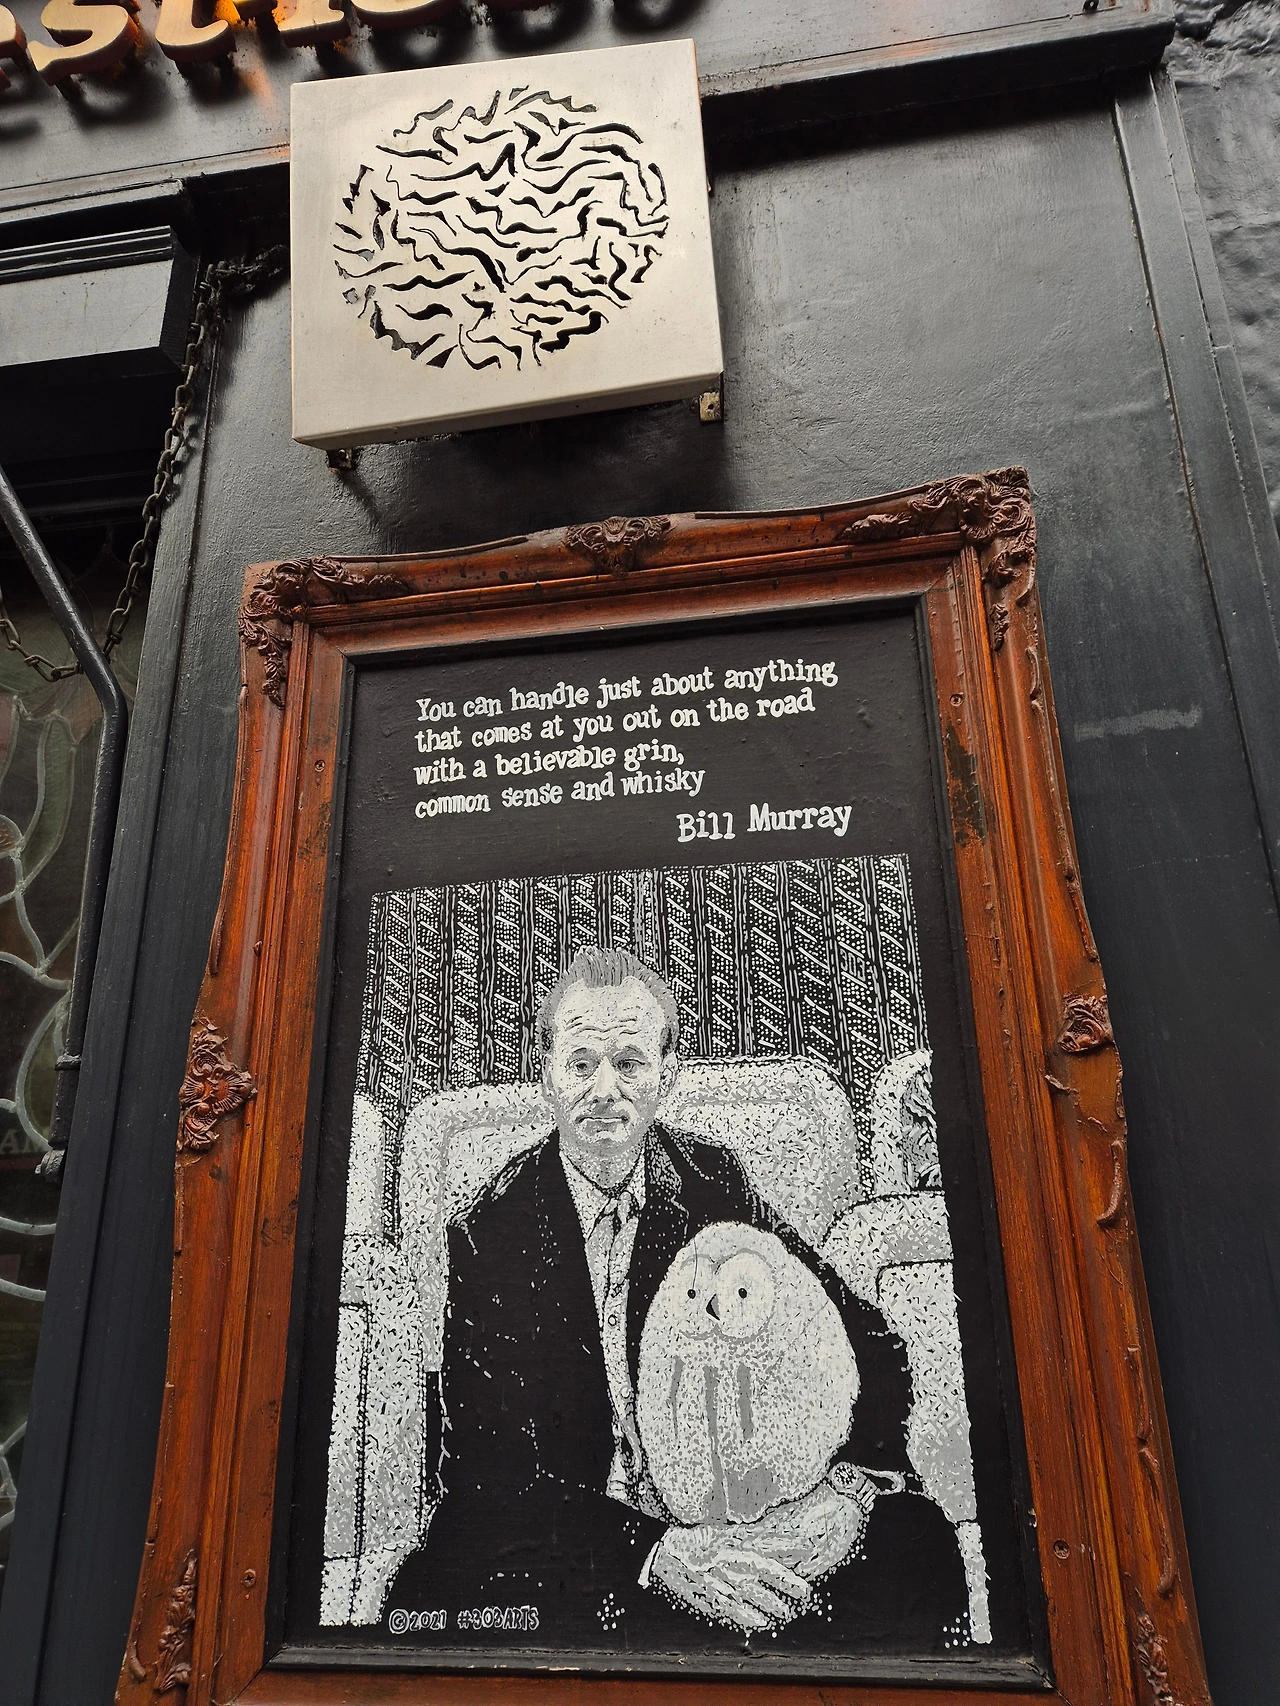 You can handle just about anything
that comes at you out on the road
with a believable grin,
common sense and whisky
Bill Murray
©2021 #303ARTS